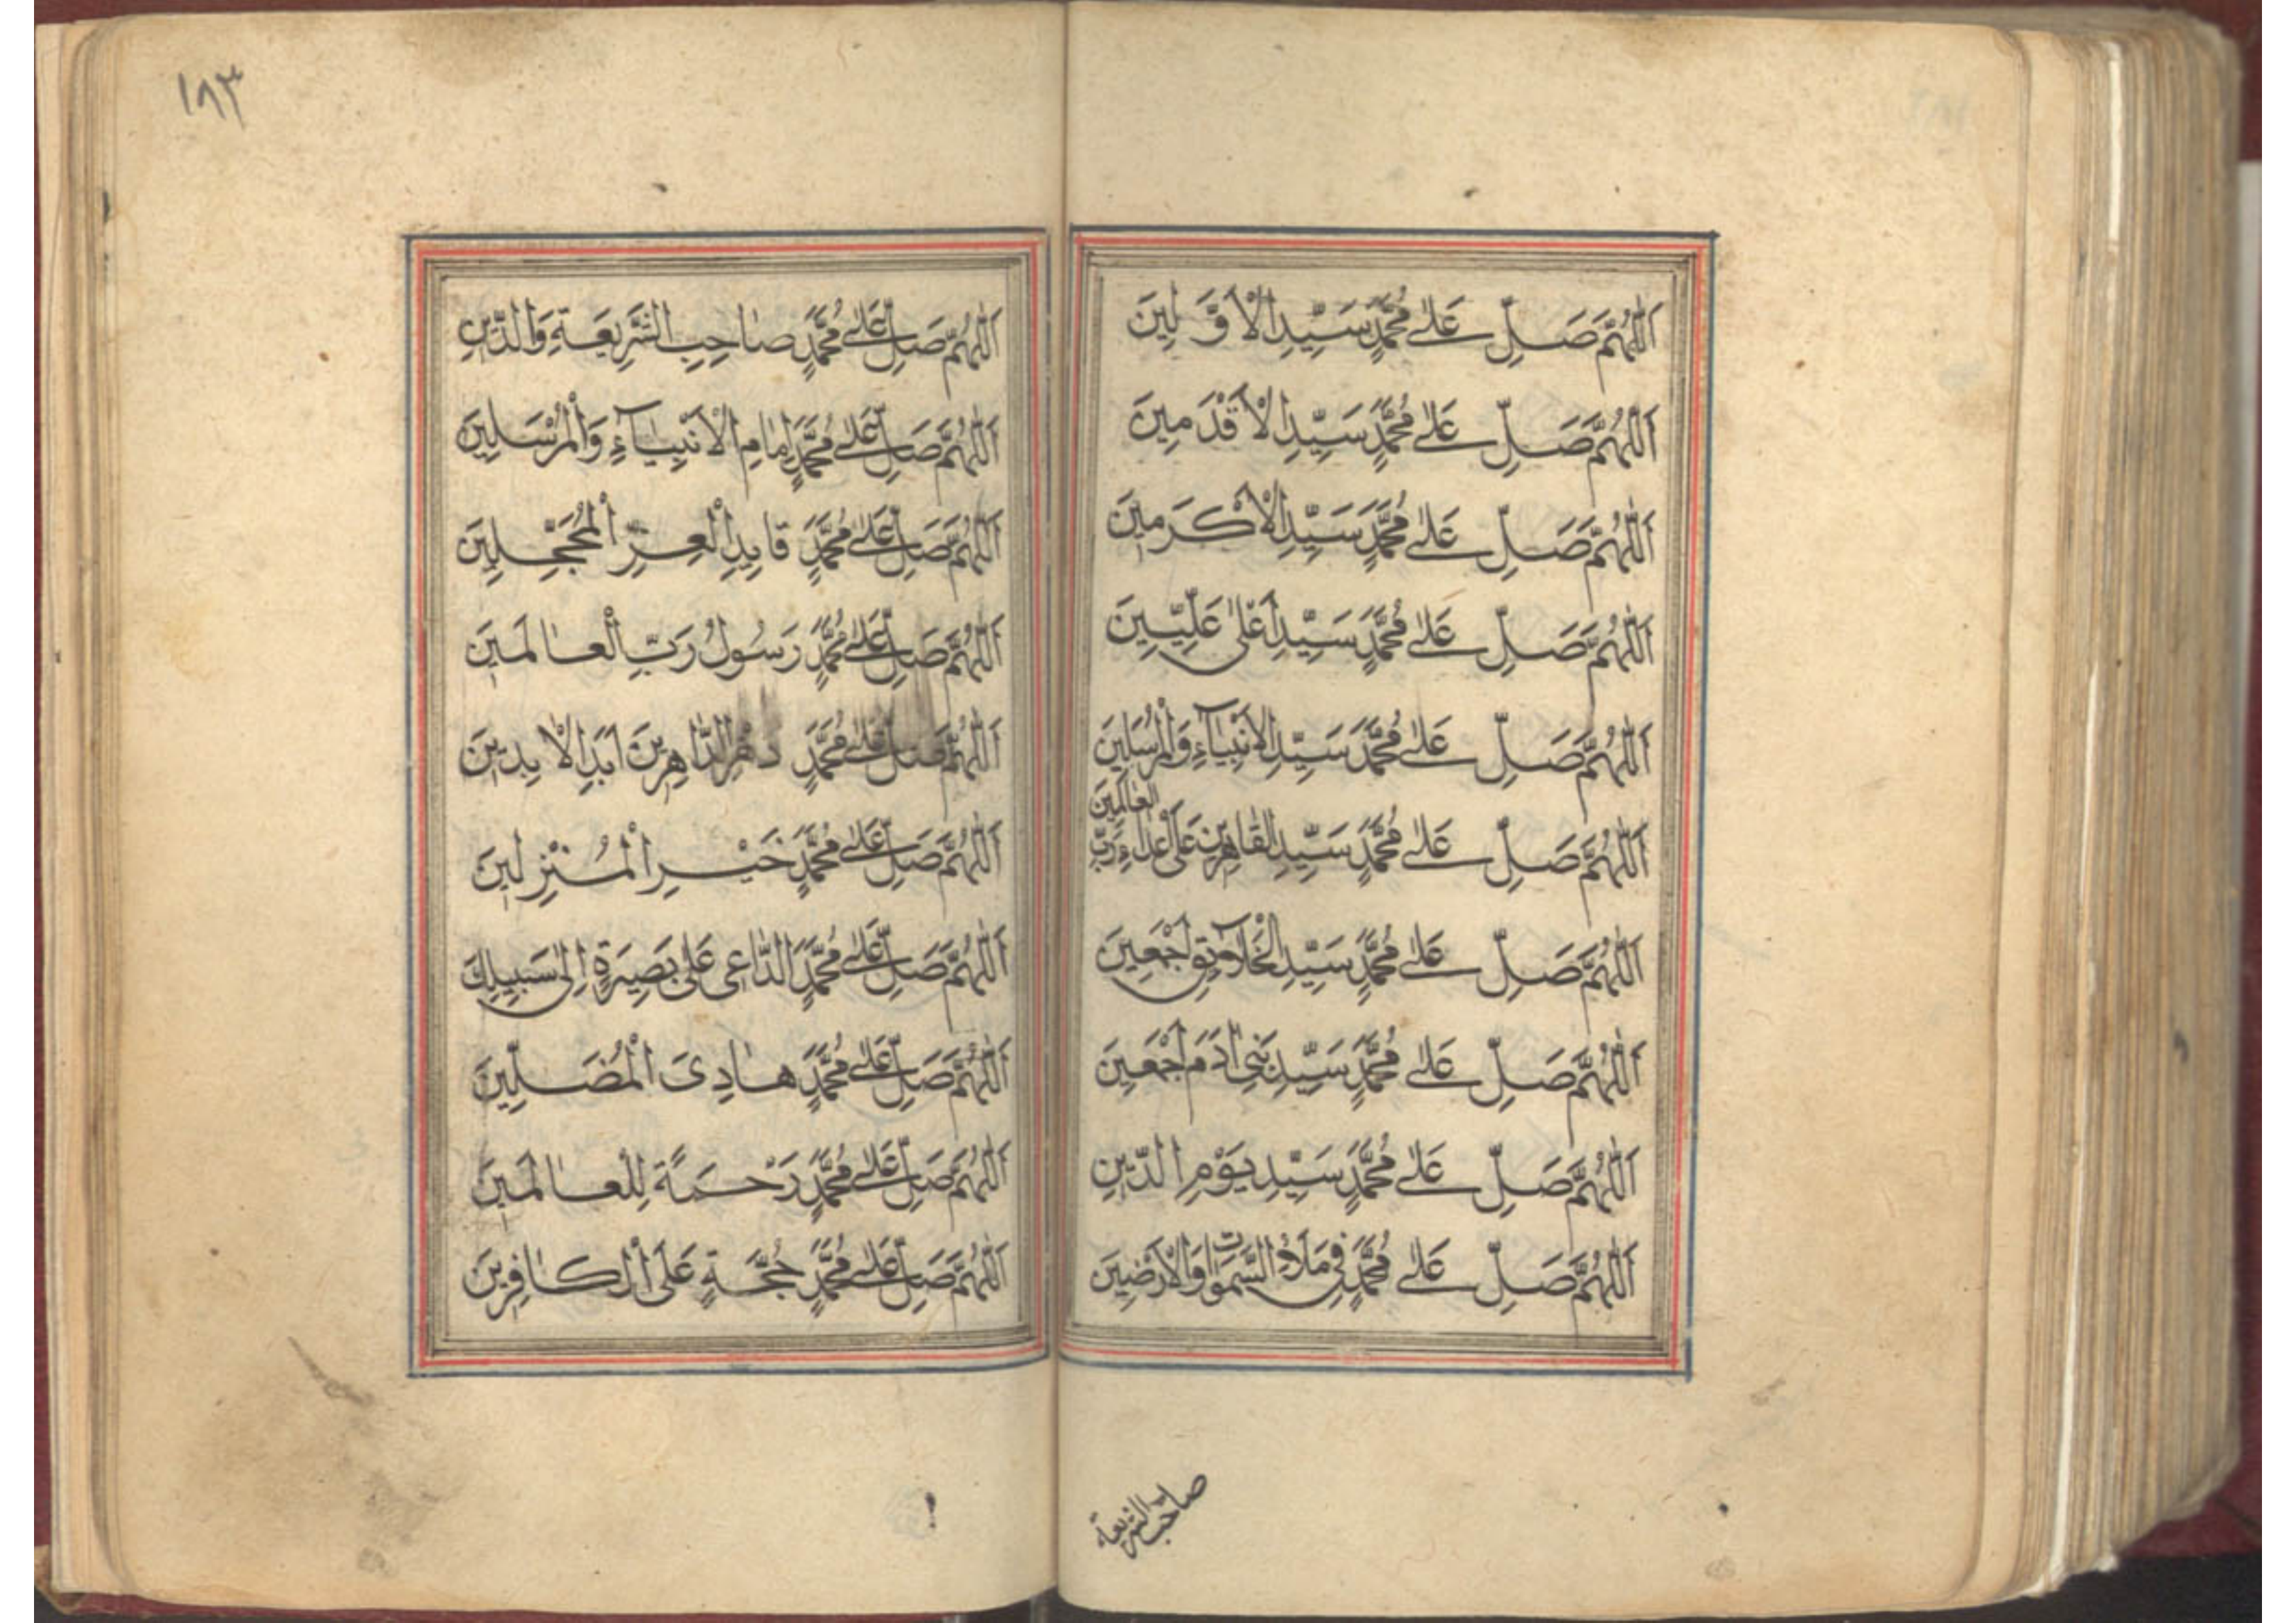 اَللّٰهُمَّ صَلِّ عَلٰى مُحَمَّدٍ سَيِّدِ الْاَوَّلِينَ
اَللّٰهُمَّ صَلِّ عَلٰى مُحَمَّدٍ سَيِّدِ الْاَقْدَمِينَ
اَللّٰهُمَّ صَلِّ عَلٰى مُحَمَّدٍ سَيِّدِ الْاَكْرَمِينَ
اَللّٰهُمَّ صَلِّ عَلٰى مُحَمَّدٍ سَيِّدِ اَعْلٰى عَلِيِّينَ
اَللّٰهُمَّ صَلِّ عَلٰى مُحَمَّدٍ سَيِّدِ الْاَنْبِيَآءِ وَالْمُرْسَلِينَ
اَللّٰهُمَّ صَلِّ عَلٰى مُحَمَّدٍ سَيِّدِ الْقَاهِرِينَ عَلٰى رَبِّ الْعَالَمِينَ
اَللّٰهُمَّ صَلِّ عَلٰى مُحَمَّدٍ سَيِّدِ الْخَلَآئِقِ اَجْمَعِينَ
اَللّٰهُمَّ صَلِّ عَلٰى مُحَمَّدٍ سَيِّدِ بَنِى اٰدَمَ اَجْمَعِينَ
اَللّٰهُمَّ صَلِّ عَلٰى مُحَمَّدٍ سَيِّدِ يَوْمِ الدِّينِ
اَللّٰهُمَّ صَلِّ عَلٰى مُحَمَّدٍ فِى مَلَاءِ السَّمٰوَاتِ وَالْاَرَضِينَ
صاحب الشريعة
١٨٣
اَللّٰهُمَّ صَلِّ عَلٰى مُحَمَّدٍ صَاحِبِ الشَّرِيعَةِ وَالدِّينِ
اَللّٰهُمَّ صَلِّ عَلٰى مُحَمَّدٍ اِمَامِ الْاَنْبِيَآءِ وَالْمُرْسَلِينَ
اَللّٰهُمَّ صَلِّ عَلٰى مُحَمَّدٍ قَايِدِ الْعِزِّ الْمُحَجَّلِينَ
اَللّٰهُمَّ صَلِّ عَلٰى مُحَمَّدٍ رَسُولُ رَبِّ الْعَالَمِينَ
اَللّٰهُمَّ صَلِّ عَلٰى مُحَمَّدٍ دَهْرَ الدَّاهِرِينَ اَبَدِ الْاٰبِدِينَ
اَللّٰهُمَّ صَلِّ عَلٰى مُحَمَّدٍ خَيْرِ الْمُنْزِلِينَ
اَللّٰهُمَّ صَلِّ عَلٰى مُحَمَّدٍ الدَّاعِى عَلٰى بَصِيرَةٍ اِلٰى سَبِيلِكَ
اَللّٰهُمَّ صَلِّ عَلٰى مُحَمَّدٍ هَادِىَ الْمُضَلِّينَ
اَللّٰهُمَّ صَلِّ عَلٰى مُحَمَّدٍ رَحْمَةً لِلْعَالَمِينَ
اَللّٰهُمَّ صَلِّ عَلٰى مُحَمَّدٍ حُجَّةٍ عَلَى الْكَافِرِينَ